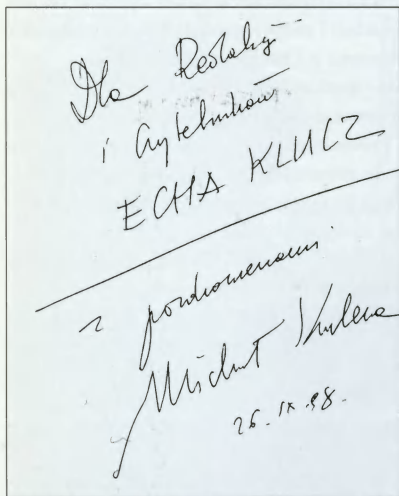 Dla Redakcji
i Czytelników
ECHA KLUCZ
z pozdrowieniami
Michał
26. IX. 98.